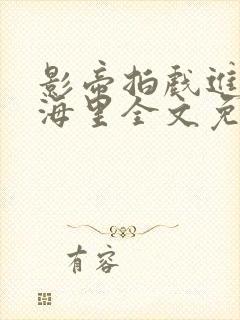 影帝拍戏进
海里全文免
有容